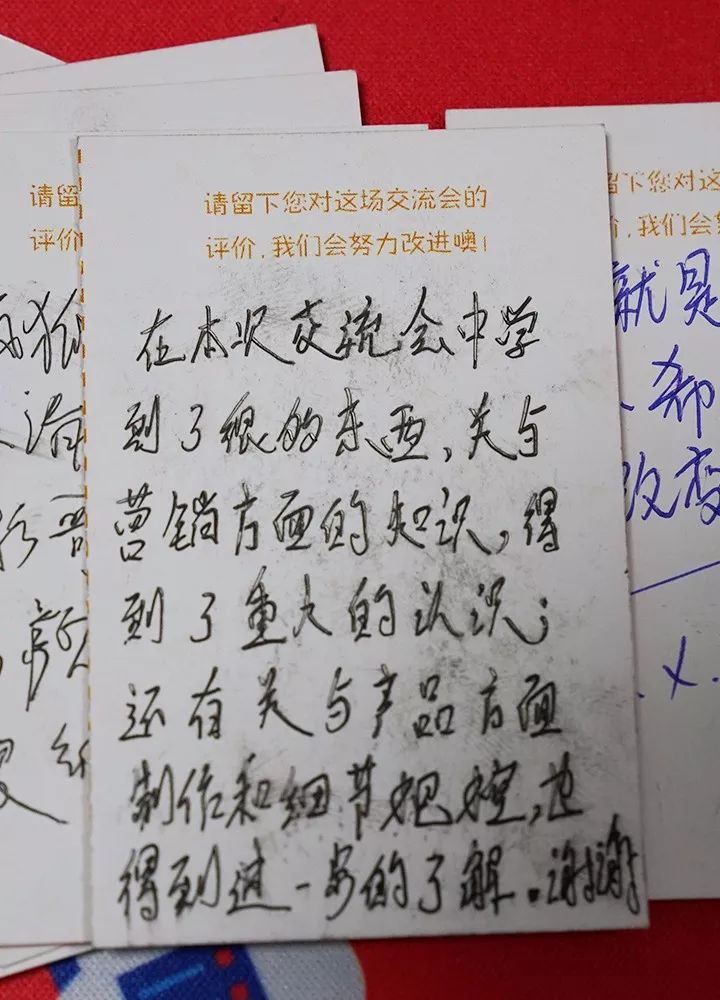 请留
评价
请留下您对这场交流会的
评价,我们会努力改进噢!
在本次交流会中学
到了很多东西,关与
营销方面的知识,得
到了重大的认识;
还有关与产品方面
制作和细节把控,也
得到进一步的了解。谢谢
留下您对这
,我们会
就是
、希
改变